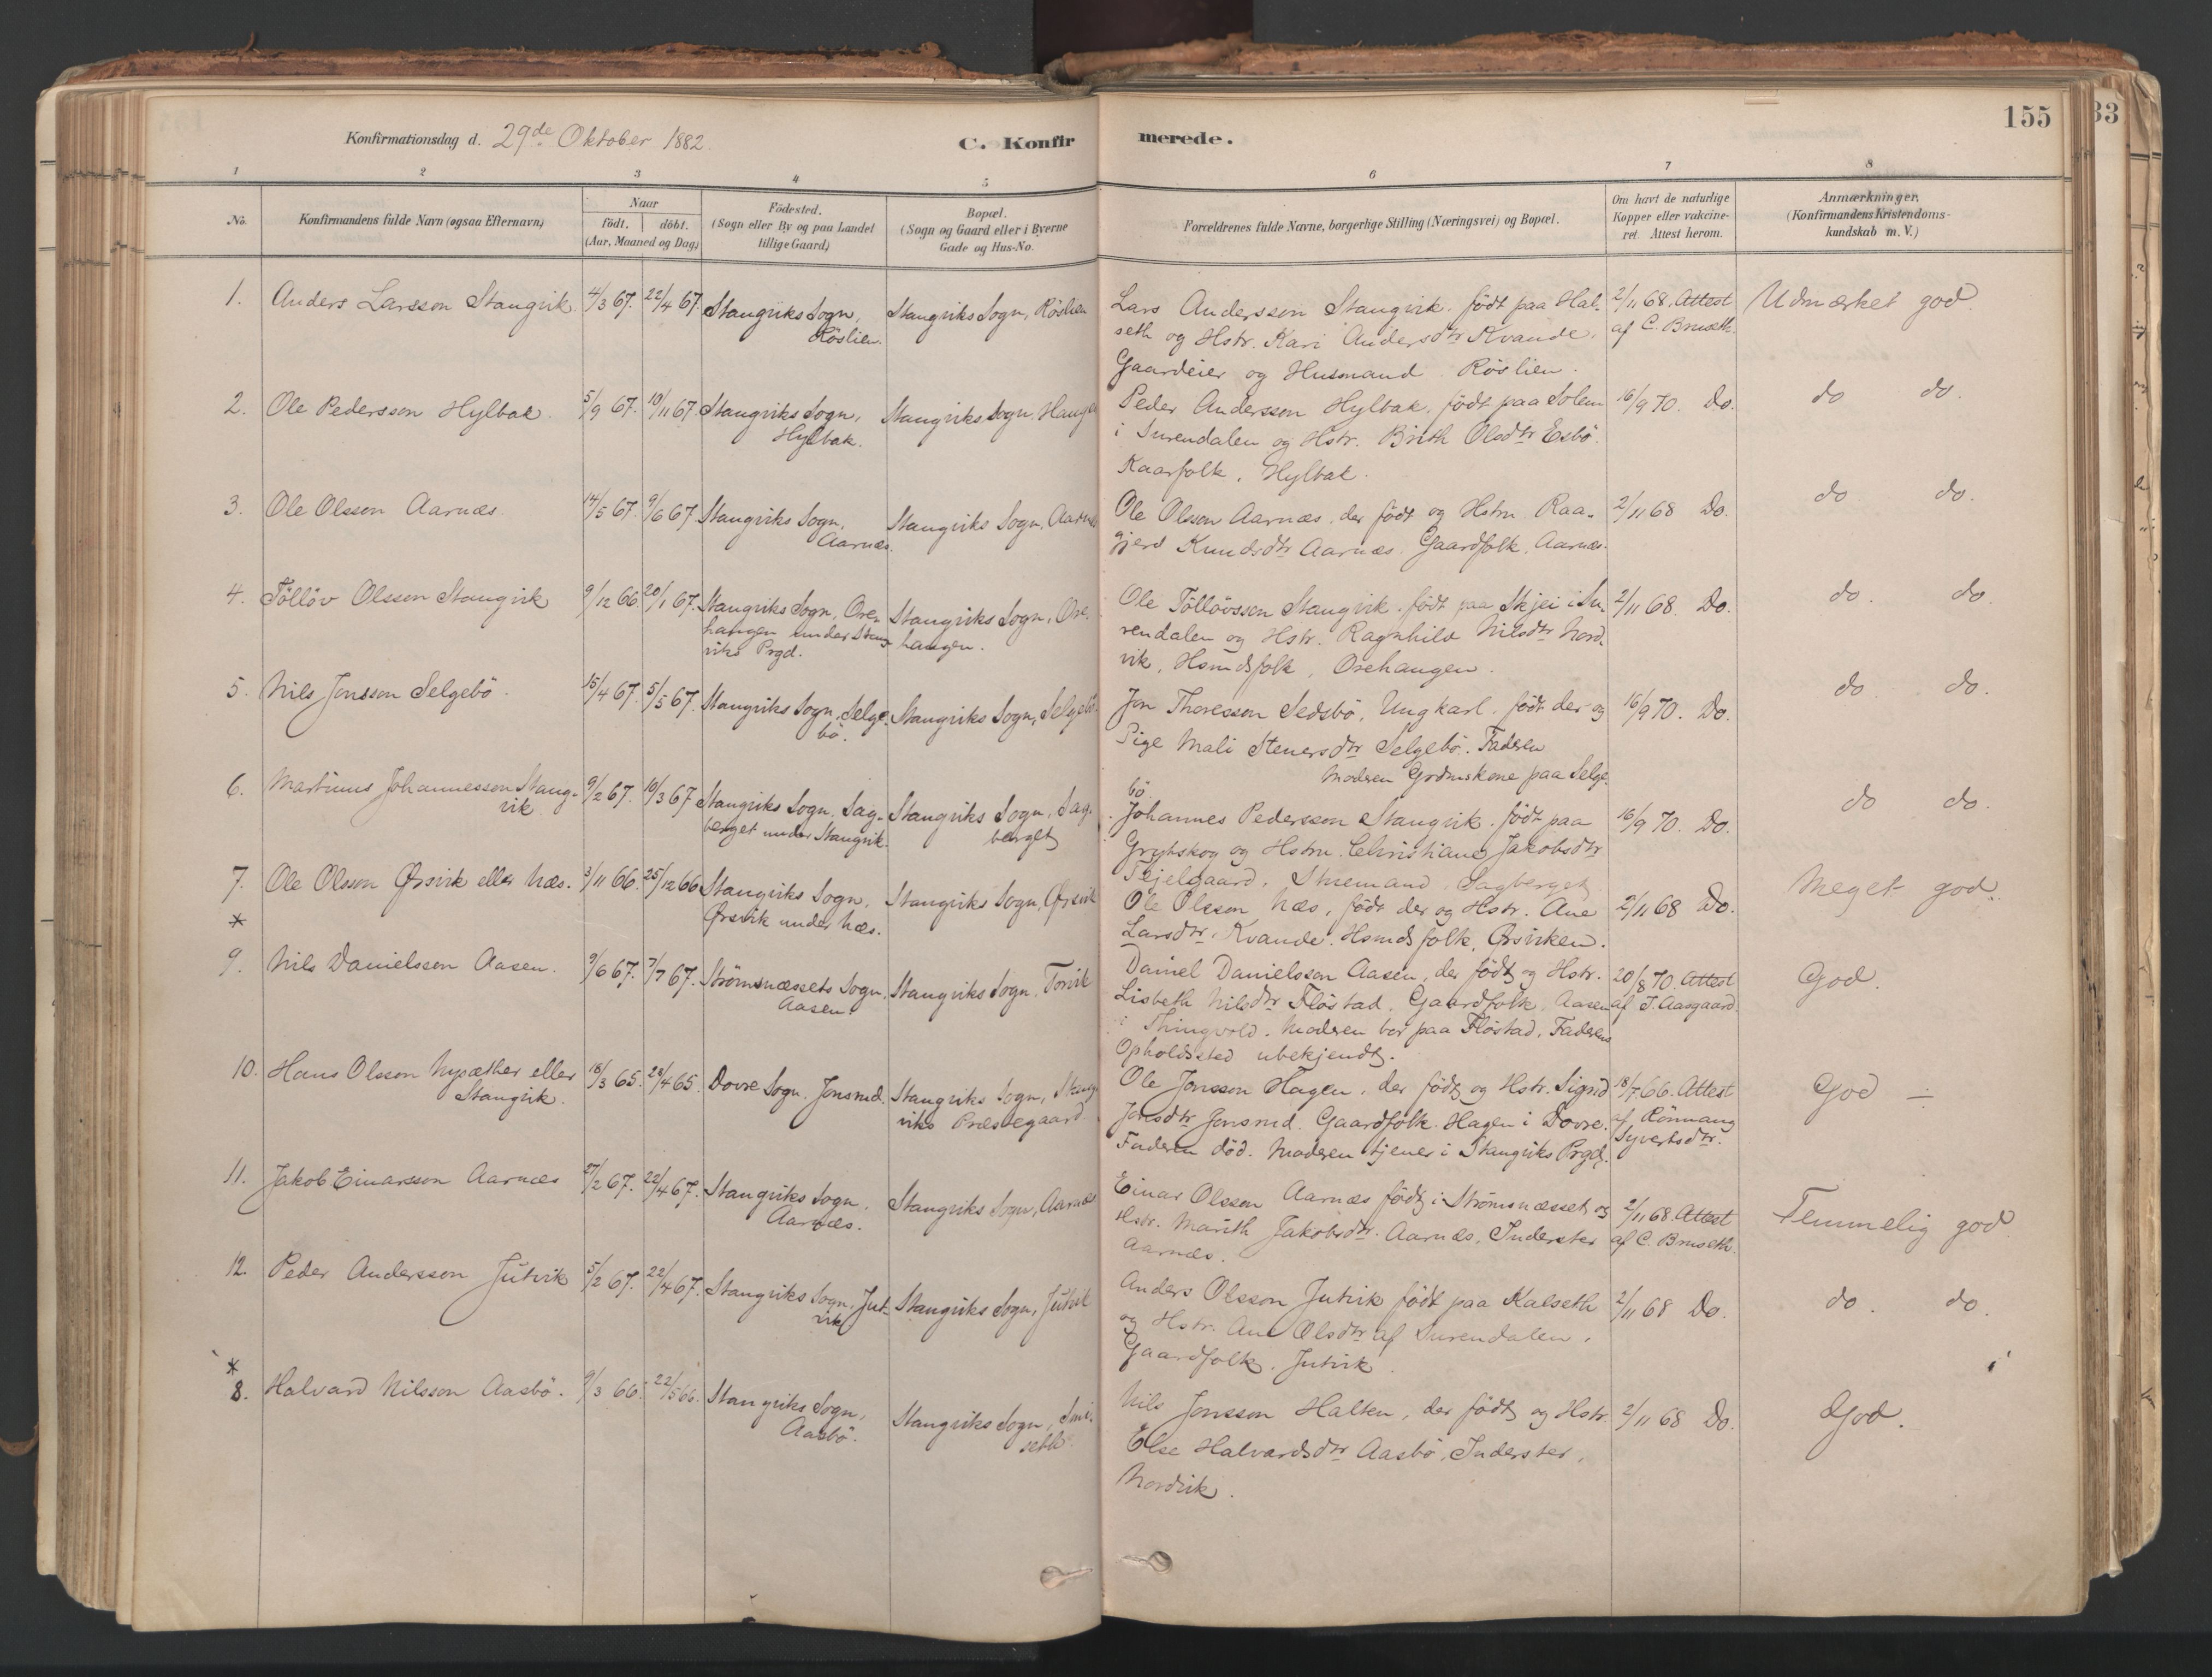 155
33
Konfirmationsdag d. 29de Oktober 1882.
C. Konfirmerede.
1 2 3 4 5 6 7 8
No.
Konfirmandens fulde Navn (ogsaa Efternavn)
Naar
födt. döbt.
(Aar, Maaned og Dag)
Födested.
(Sogn eller By og paa Landet
tillige Gaard)
Bopæl.
(Sogn og Gaard eller i Byerne
Gade og Hus-No.
Forældrenes fulde Navne, borgerlige Stilling (Næringsvei) og Bopæl.
Om havt de naturlige
Kopper eller vakcine-
ret. Attest herom.
Anmærkninger.
(Konfirmandens Kristendoms-
kundskab m. V.)
1. Anders Larsson Stangvik 4/3 67. 22/4 67. Stangviks Sogn,
Röslien.
Stangviks Sogn, Röslien
Lars Andersson Stangvik. født paa Hal-
seth og Hstr. Kari Andersdtr Kvande.
Gaardeier og Husmand Röslien.
2/11 68. Attest
af C. Bruseth.
Udmærket god.
2. Ole Pedersson Hylbak. 5/9 67. 10/11 67. Stangviks Sogn,
Hylbak.
Stangviks Sogn. Haugen
Peder Andersson Hylbak, født paa Solem
i Surendalen og Hstr. Brith Olsdtr Esbö.
Kaarfolk, Hylbak.
16/9 70. Do.
do do.
3. Ole Olsson Aarnæs. 14/5 67. 9/6 67. Stangviks Sogn,
Aarnæs.
Stangviks Sogn, Aarnæs
Ole Olsson Aarnæs, der født og Hstru Raa-
gjerd Knudsdtr Aarnæs. Gaardfolk, Aarnæs.
2/11 68 Do.
do do.
4. Töllöv Olsson Stangvik 9/12 66. 20/1 67. Stangviks Sogn, Ore-
haugen under Stang-
viks Prgd.
Stangviks Sogn, Ore-
haugen.
Ole Töllövsson Stangvik. født paa Skjei i Su-
rendalen og Hstr. Ragnhild Nilsdtr Nord-
vik, Hsmdsfolk, Orehaugen.
2/11 68. Do.
do. do.
5. Nils Jonsson Selgebö. 15/4 67. 5/5 67. Stangviks Sogn, Selge-
bö.
Stangviks Sogn, Selgebö.
Jon Thoresson Sedsbö, Ungkarl, født der og
Pige Mali Stenersdtr Selgebö. Faderen
Moderen Grdmskone paa Selge-
bö.
16/9 70. Do.
do do.
6. Martinus Johannesson Stang-
vik
9/2 67. 10/3 67 Stangviks Sogn, Sag-
berget under Stangvik.
Stangviks Sogn, Sag-
berget
Johannes Pedersson Stangvik. født paa
Grytskog og Hstru. Christiane Jakobsdtr
Tejelgaard. Sagberget
16/9 70. Do.
do do.
7. Ole Olsson Ørsvik eller Næs. 3/11 66. 25/12 66 Stangviks Sogn,
Ørsvik under Næs.
Stangviks Sogn, Ørsvik
Ole Olsson Næs, født der og Hstr. Ane
Larsdtr. Kvande. Hsmdsfolk, Ørsviken.
2/11 68 Do.
Meget god.
*
9. Nils Danielsson Aasen. 9/6 67. 7/7 67. Strömsnæssets Sogn,
Aasen.
Stangviks Sogn, Torvik
Daniel Danielsson Aasen, der født og Hstr.
Lisbeth Nilsdtr Flöstad, Gaardfolk, Aasen
i Thingvold. Moderen bor paa Flöstad, Faderens
Opholdssted ubekjendt.
20/8 70. Attest
af J. Aasgaard.
God.
10. Hans Olsson Nysæther eller
Stangvik.
18/3 65. 28/4 65. Dovre Sogn. Jonsrud.
Stangviks Sogn, Stang-
viks Præstegaard.
Ole Jonsson Hagen, der født og Hstr. Sigrid
Joresdtr Jonsrud. Gaardfolk. Hagen i Dovre.
Faderen död. Moderen tjener i Stangviks Prgd.
18/7 66. Attest
af Rönnaug
Syvertsdtr.
God ÷
11. Jakob Einarsson Aarnæs 27/2 67. 22/4 67. Stangviks Sogn,
Aarnæs.
Stangviks Sogn, Aarnæs
Einar Olsson Aarnæs født i Strömsnæsset og
Hstr. Marith Jakobsdtr. Aarnæs, Inderster
Aarnæs.
2/11 68. Attest
af C. Bruseth.
Temmelig god.
12. Peder Andersson Jutvik 5/2 67. 22/4 67. Stangviks Sogn, Jut-
vik
Stangviks Sogn, Jutvik
Anders Olsson Jutvik født paa Kalseth
og Hstr. Ane Olsdtr af Surendalen.
Gaardfolk, Jutvik.
2/11 68 Do.
do. do.
*
8. Halvard Nilsson Aasbö. 9/3 66. 22/5 66. Stangviks Sogn,
Aasbö.
Stangviks Sogn, Smi-
seth.
Nils Jonsson Halten, der født og Hstr.
Else Halvardsdtr Aasbö, Inderster,
Nordvik.
2/11 68 Do.
God.